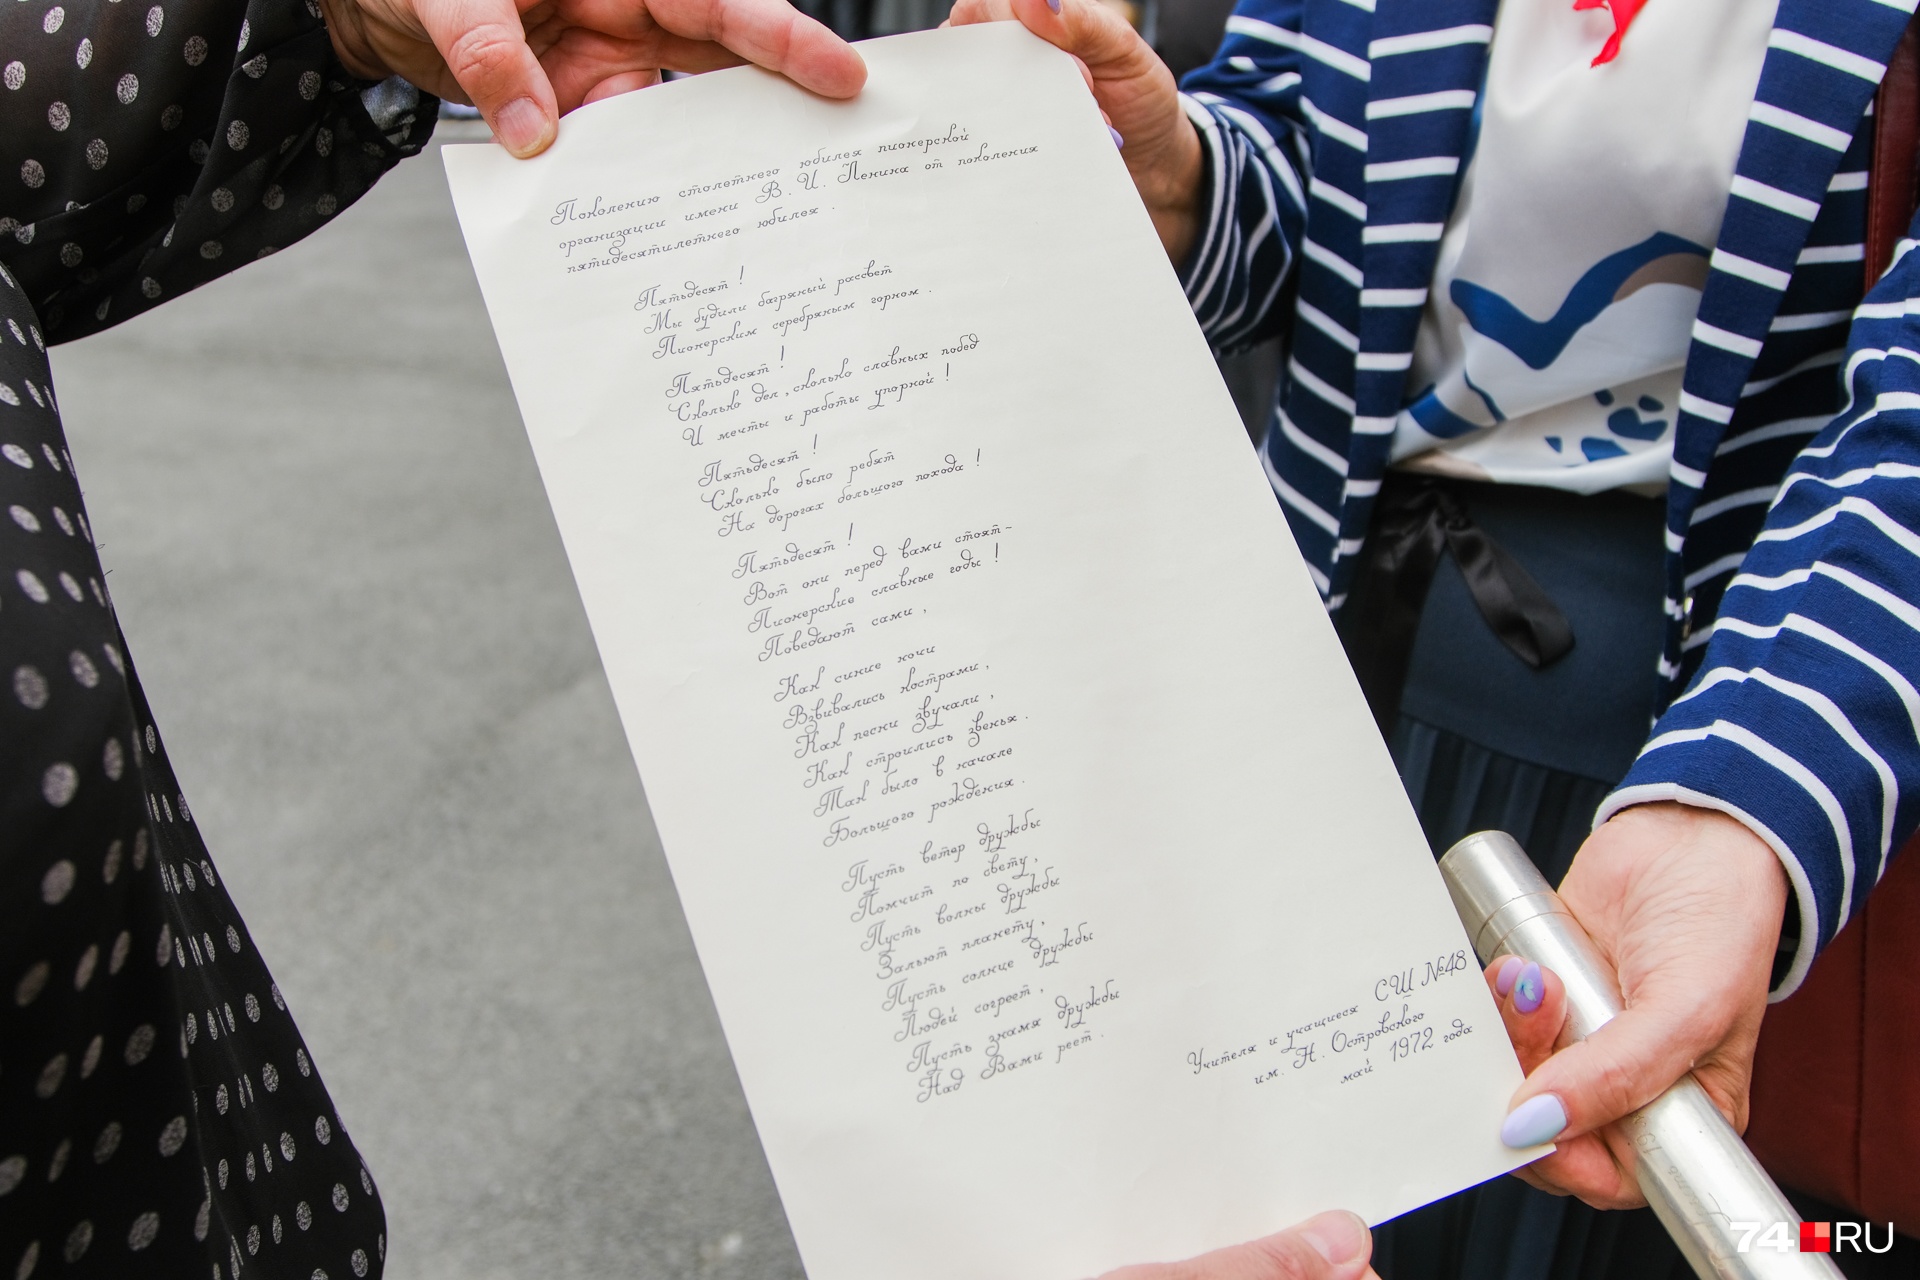 Поколению столетнего юбилея пионерской
организации имени В. И. Ленина от поколения
пятидесятилетнего юбилея.
Пятьдесят!
Мы будили багряный рассвет
Пионерским серебряным горном.
Пятьдесят!
Сколько дел, сколько славных побед
И мечты и работы упорной!
Пятьдесят!
Сколько было ребят
На дорогах большого похода!
Пятьдесят!
Вот они перед вами стоят-
Пионерские славные годы!
Поведают сами,
Как синие ночи
Взвивались кострами,
Как песни звучали,
Как строились звенья.
Так было в начале
Большого рождения.
Пусть ветер дружбы
Помчит по свету,
Пусть волны дружбы
Зальют планету,
Пусть солнце дружбы
Людей согреет,
Пусть знамя дружбы
Над Вами реет.
Учителя и учащиеся СШ №48
им. Н. Островского
май 1972 года
74.RU